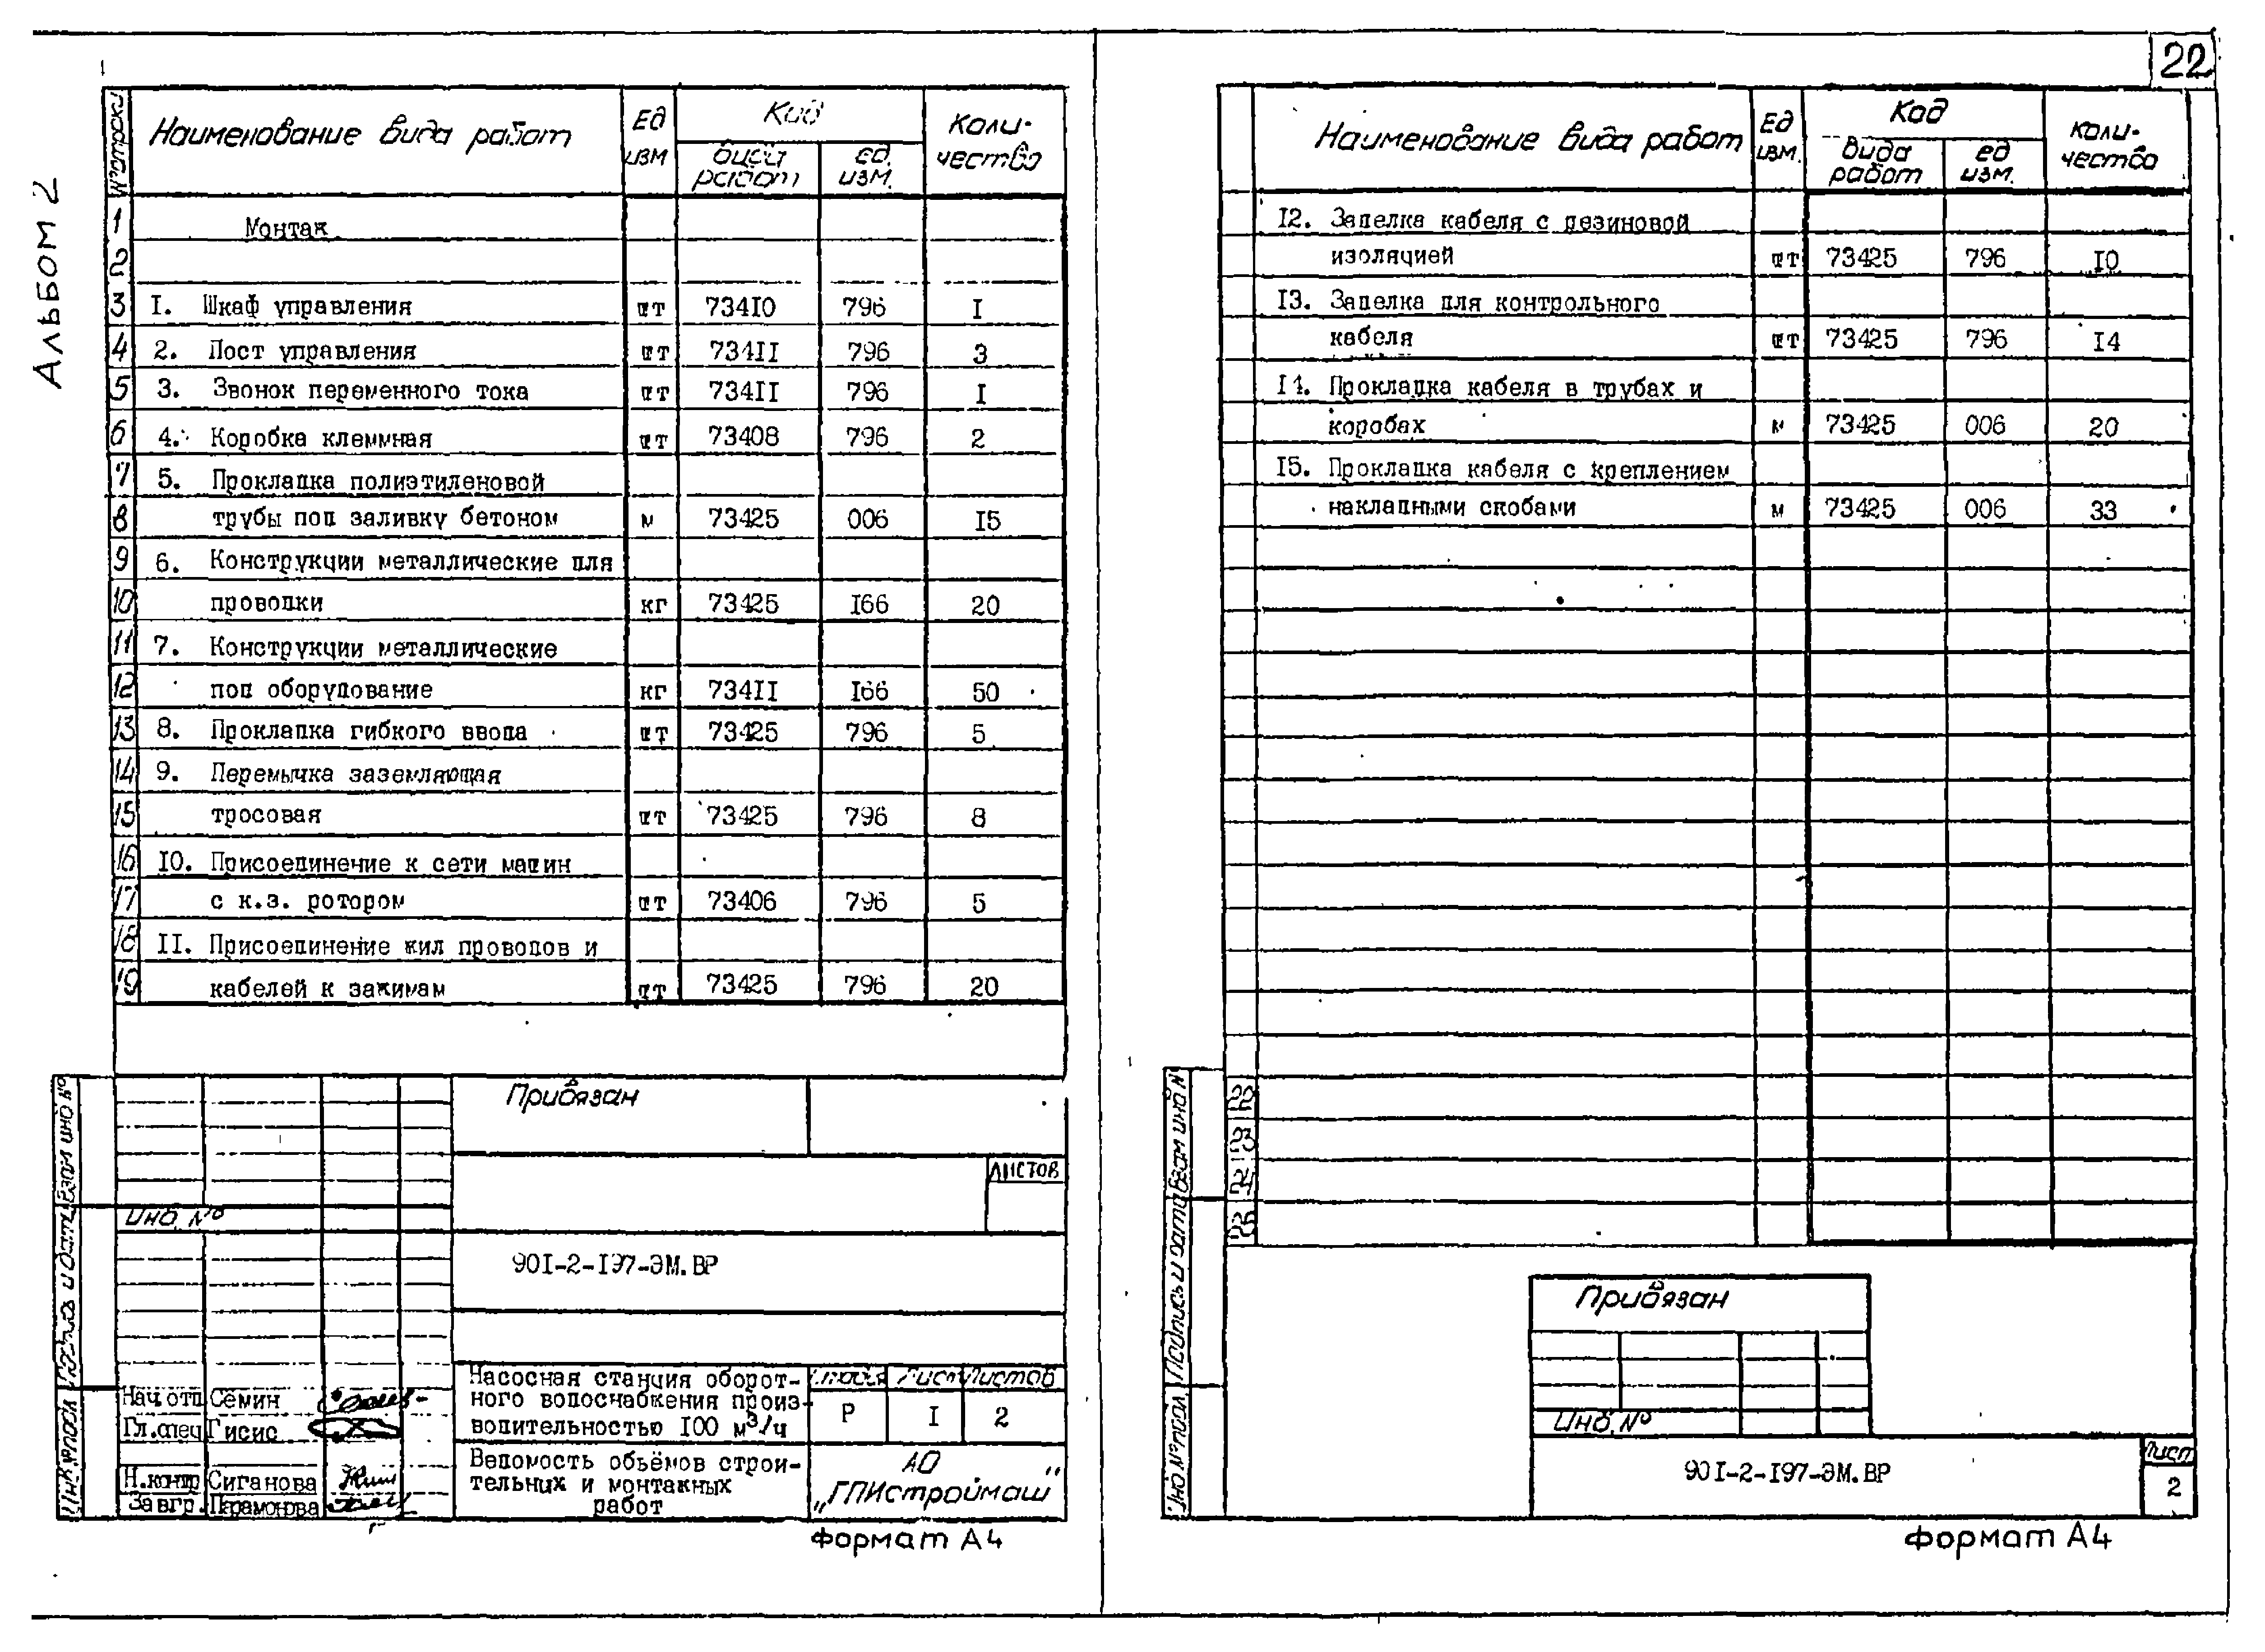 22
АЛЬБОМ 2
№ строки Наименование вида работ Ед изм Код вида работ ед. изм. Коли-чество
1 Монтаж
2
3 1. Шкаф управления шт 73410 796 1
4 2. Пост управления шт 73411 796 3
5 3. Звонок переменного тока шт 73411 796 1
6 4. Коробка клеммная шт 73408 796 2
7 5. Прокладка полиэтиленовой
8 трубы под заливку бетоном м 73425 006 15
9 6. Конструкции металлические для
10 проводки кг 73425 166 20
11 7. Конструкции металлические
12 под оборудование кг 73411 166 50
13 8. Прокладка гибкого ввода шт 73425 796 5
14 9. Перемычка заземляющая
15 тросовая шт 73425 796 8
16 10. Присоединение к сети машин
17 с к.з. ротором шт 73406 796 5
18 11. Присоединение жил проводов и
19 кабелей к зажимам шт 73425 796 20
Привязан
ЛИСТОВ
Инв. №
901-2-197-ЭМ.ВР
Насосная станция оборот-
ного водоснабжения произ-
водительностью 100 м³/ч
Стадия Лист Листов
Р 1 2
Нач.отд. Семин
Гл.спец Гисис
Н.контр Сиганова
Зав гр. Парамонова
Ведомость объёмов строи-
тельных и монтажных
работ
АО
„ГПИстроймаш"
Формат А4
Взам инв №
Подпись и дата
Инв № подл
Наименование вида работ Ед изм. Код вида работ ед изм. Коли-чество
12. Заделка кабеля с резиновой
изоляцией шт 73425 796 10
13. Заделка для контрольного
кабеля шт 73425 796 14
14. Прокладка кабеля в трубах и
коробах м 73425 006 20
15. Прокладка кабеля с креплением
накладными скобами м 73425 006 33
23
24
25
Взам инв №
Подпись и дата
Инв № подл.
Привязан
Инв. №
901-2-197-ЭМ.ВР
Лист
2
Формат А4